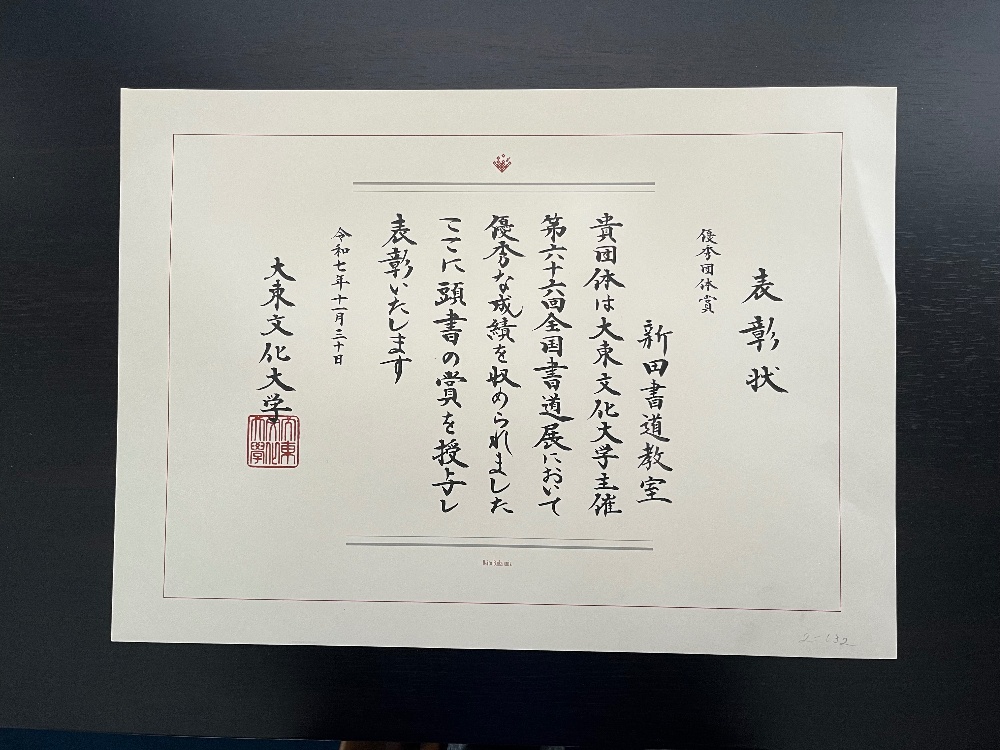 表彰状
優秀団体賞
新田書道教室
貴団体は大東文化大学主催
第六十六回全国書道展において
優秀な成績を収められました
ここに頭書の賞を授与し
表彰いたします
令和七年十一月三十日
大東文化大学
大東文化大學
2-132